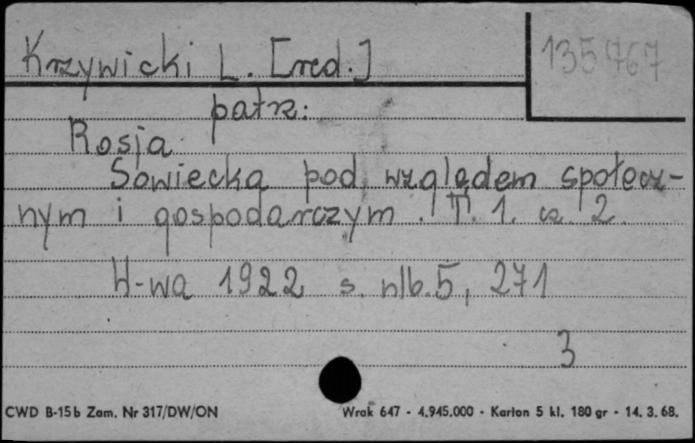 Krzywicki L. [red.]
135767
patrz:
Rosja
Sowiecka pod względem społecz-
nym i gospodarczym. T. 1. cz. 2.
W-wa 1922 s. nlb. 5, 271
3
CWD B-15b Zam. Nr 317/DW/ON Wrak 647 - 4.945.000 - Karton 5 kl. 180 gr - 14. 3. 68.